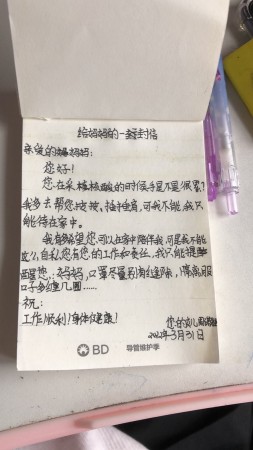 给妈妈的一封信
亲爱的妈妈:
您好!
您在采核酸的时候手是不是很累?
我多去帮您按按、捶捶肩,可我不能,我只
能待在家中。
我有多希望您可以在家中陪伴我,可是我不能
这么自私,您有您的工作和责任,我只能提
醒您:妈妈,口罩尽量别有缝隙,隔离服
口子多缠几圈……
祝:
工作顺利!身体健康!
您的女儿
2022年3月31日
BD 导管维护季